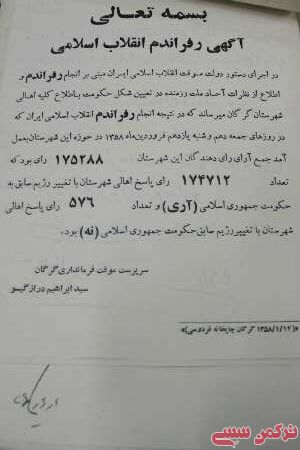 بسمه تعالی
آگهی رفراندم انقلاب اسلامی
در اجرای دستور دولت موقت انقلاب اسلامی ایران مبنی بر انجام رفراندم و
اطلاع از نظرات آحاد ملت رزمنده در تعیین شکل حکومت باطلاع کلیه اهالی
شهرستان گرگان میرساند که در نتیجه انجام رفراندم انقلاب اسلامی ایران که
در روزهای جمعه دهم و شنبه یازدهم فروردین‌ماه ۱۳۵۸ در حوزه این شهرستان بعمل
آمد جمع آرای رای دهندگان این شهرستان ۱۷۵۲۸۸ رای بود که
تعداد ۱۷۴۷۱۲ رای پاسخ اهالی شهرستان با تغییر رژیم سابق به
حکومت جمهوری اسلامی (آری) و تعداد ۵۷۶ رای پاسخ اهالی
شهرستان با تغییر رژیم سابق حکومت جمهوری اسلامی (نه) بود.
سرپرست موقت فرمانداری گرگان
سید ابراهیم درازگیسو
«(۱۳۵۸/۱/۱۲ گرگان چاپخانه فردوسی)»
ترکمن سسی